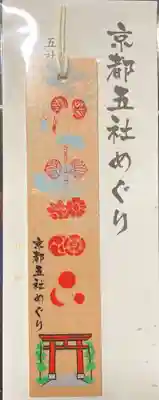 京都五社めぐり
京都五社めぐり